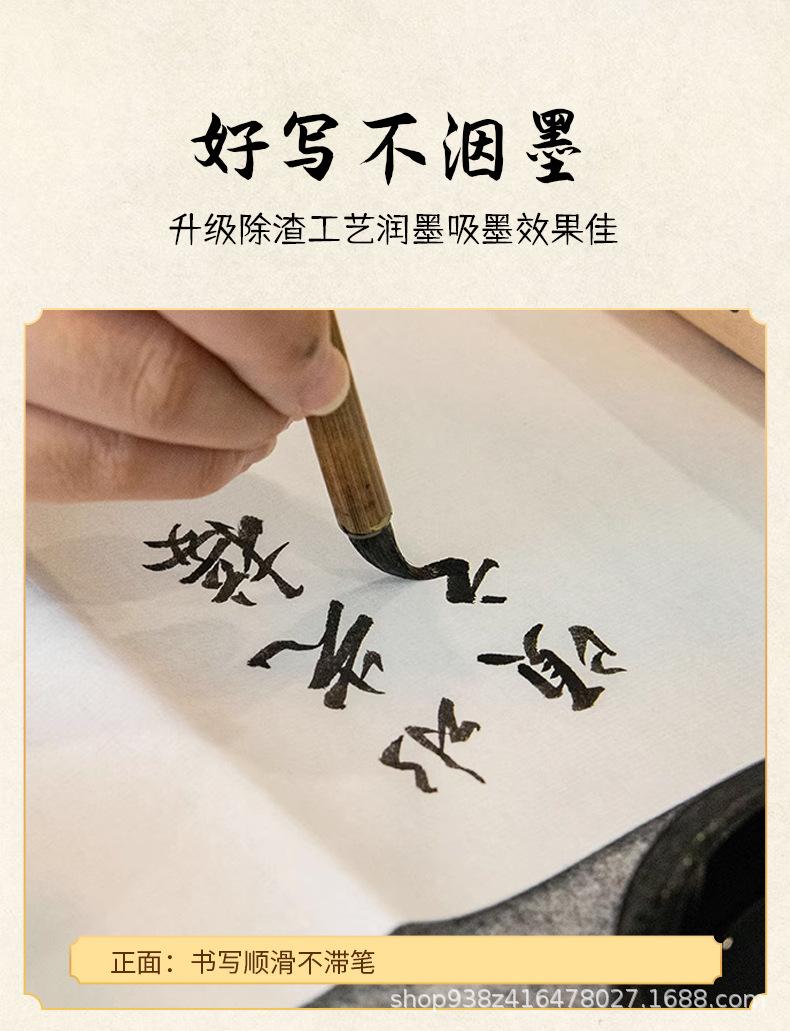 好写不洇墨
升级除渣工艺润墨吸墨效果佳
正面：书写顺滑不滞笔
shop938z416478027.1688.com